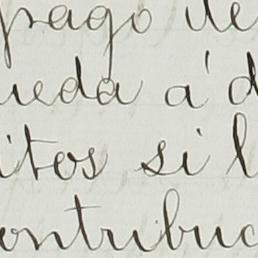 pago de
ueda á d
itos si l
ontribuc